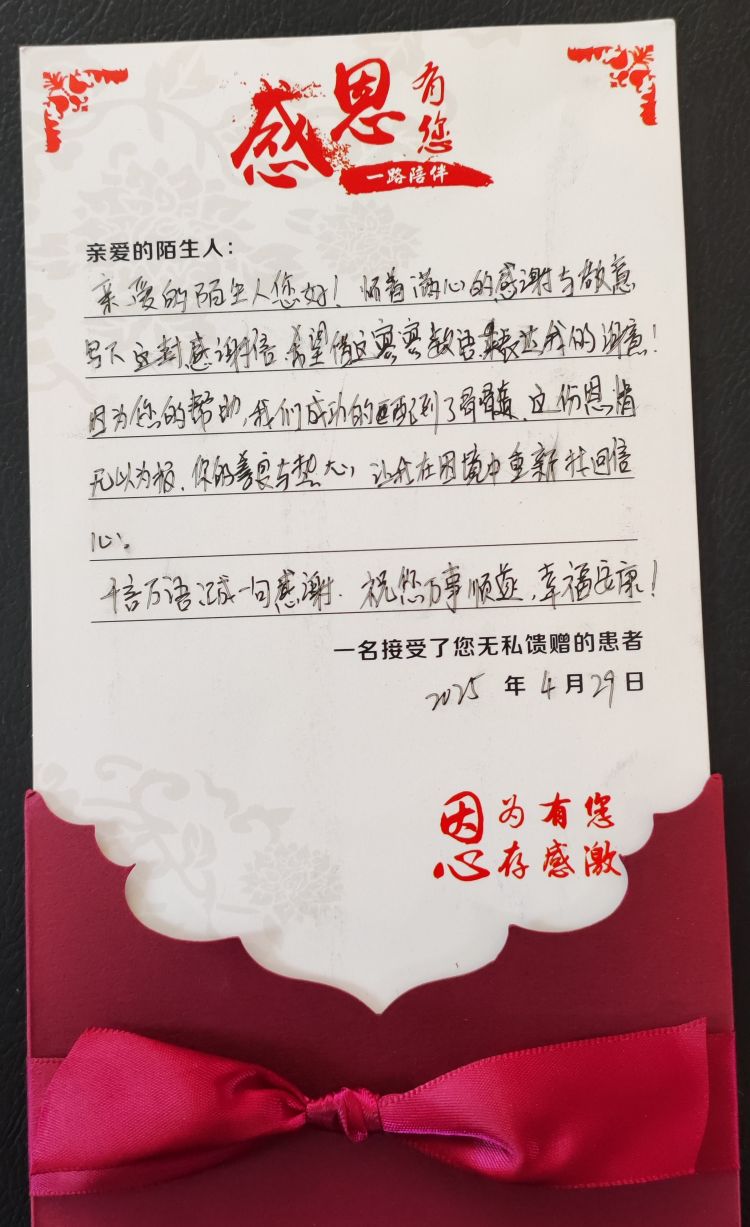 感恩有您
一路陪伴
亲爱的陌生人：
亲爱的陌生人您好！怀着满心的感谢与敬意
写下这封感谢信，希望借这寥寥数语，表达我的谢意！
因为您的帮助，我们成功的匹配到了骨髓，这份恩情
无以为报，你的善良与热心，让我在困境中重新找回信
心。
千言万语汇成一句感谢，祝您万事顺遂，幸福安康！
一名接受了您无私馈赠的患者
2025年4月29日
因为有您
心存感激